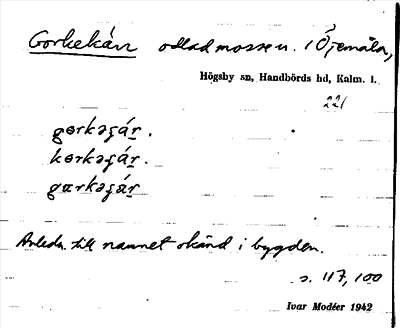 Gorkekärr odlad mosse n. i Öjemåla,
Högsby sn, Handbörds hd, Kalm. l.
221
gɵrkəʒár.
kɵrkəʒár.
gɑrkəʒár
Anledn. till namnet okänd i bygden.
s. 117, 100
Ivar Modéer 1942